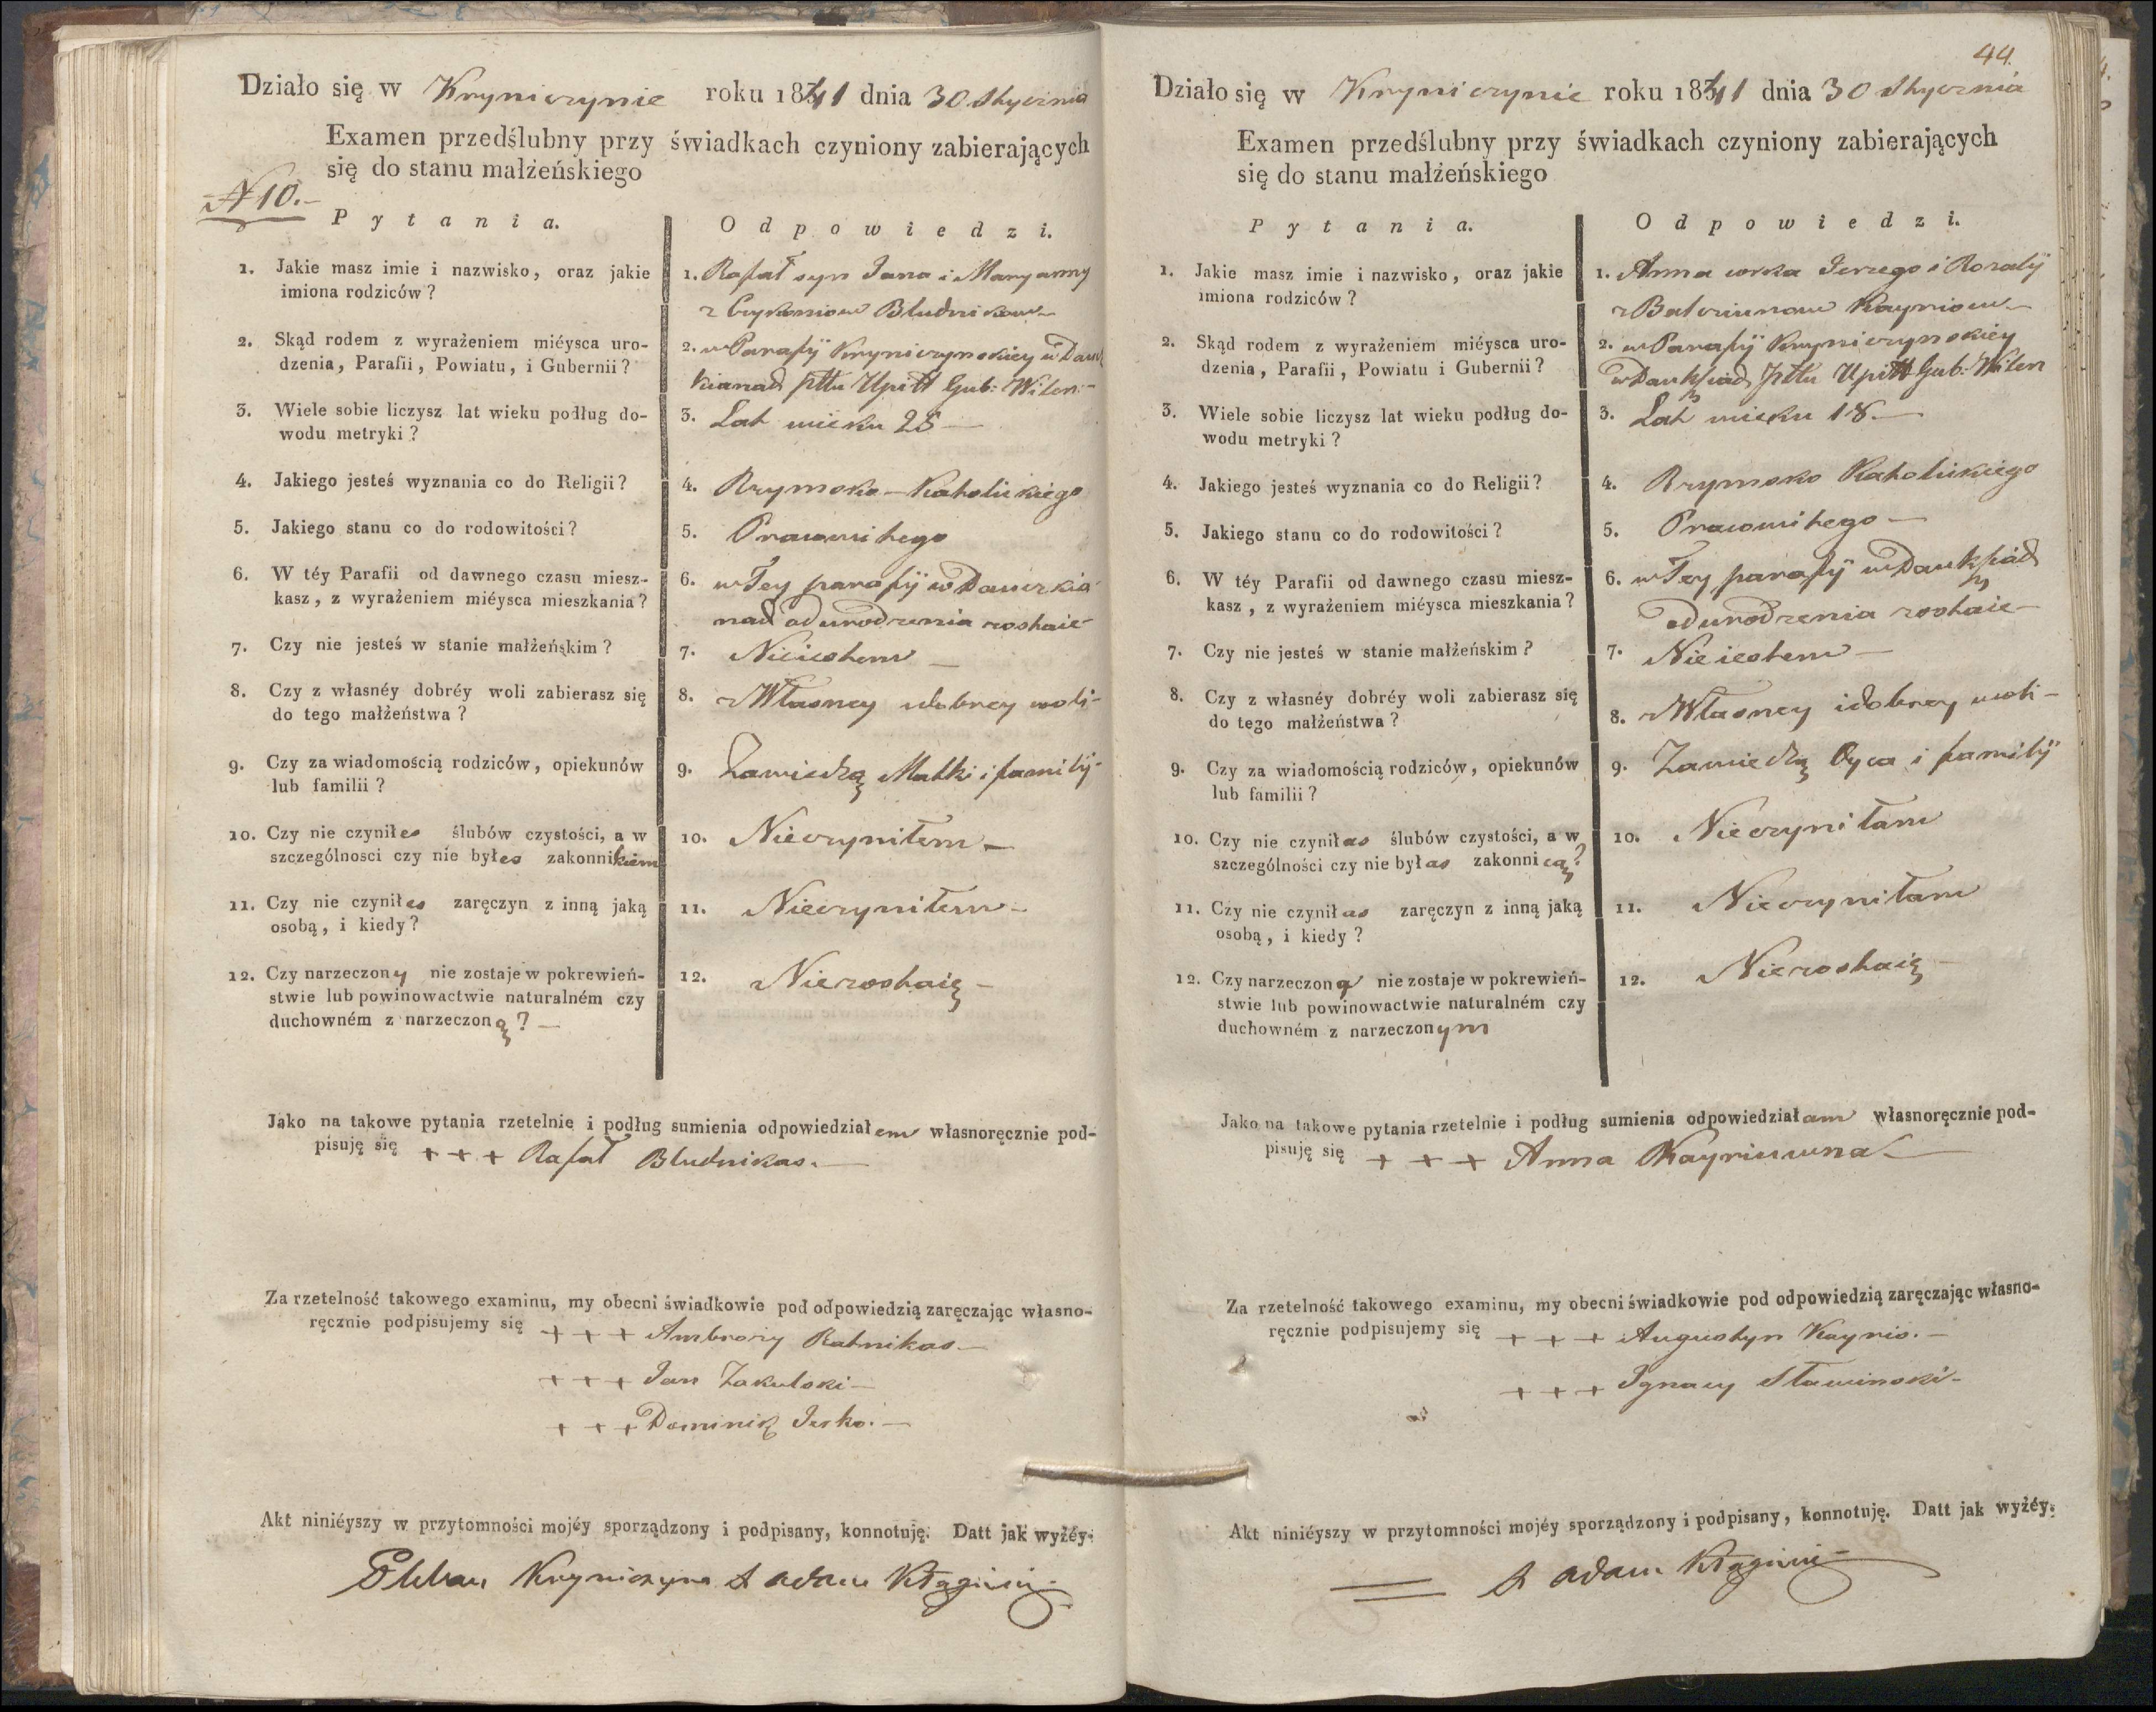 Działo się w Kryniczynie roku 1841 dnia 30 Stycznia
Examen przedślubny przy świadkach czyniony zabierających
się do stanu małżeńskiego
N 10.-
Pytania.
Odpowiedzi.
1. Jakie masz imie i nazwisko, oraz jakie
imiona rodziców?
1. Rafał syn Jana i Maryanny
z Bludnikow-
2. Skąd rodem z wyrażeniem miéysca uro-
dzenia, Parafii, Powiatu, i Gubernii?
2. w Parafij Kryniczynskiey w Daw
kianach pttu Upitt Gub: Wilen:-
3. Wiele sobie liczysz lat wieku podług do-
wodu metryki?
3. Lat wieku 25-
4. Jakiego jesteś wyznania co do Religii?
4. Rzymsko-Katholickiego
5. Jakiego stanu co do rodowitości?
5. Prawowitego
6. W téy Parafii od dawnego czasu miesz-
kasz, z wyrażeniem miéysca mieszkania?
6. w Tey parafij w
od urodzenia zostaie
7. Czy nie jesteś w stanie małżeńskim?
7. Nieiestem -
8. Czy z własnéy dobréy woli zabierasz się
do tego małżeństwa?
8. z Własney idobrey woli-
9. Czy za wiadomością rodziców, opiekunów
lub familii?
9. Zawiedzą Matki i familij-
10. Czy nie czyniłes ślubów czystości, a w
szczególnosci czy nie byłes zakonnikiem
10. Nieczyniłem -
11. Czy nie czyniłes zaręczyn z inną jaką
osobą, i kiedy?
11. Nieczyniłem -
12. Czy narzeczony nie zostaje w pokrewień-
stwie lub powinowactwie naturalném czy
duchowném z narzeczoną? -
12. Niezostaię -
Jako na takowe pytania rzetelnie i podług sumienia odpowiedziałem własnoręcznie pod-
pisuję się + + + Rafał Bludnikas. -
Za rzetelność takowego examinu, my obecni świadkowie pod odpowiedzią zaręczając własno-
ręcznie podpisujemy się + + + Ambrozy Ratnikas -
+ + + Jan Zakulski -
+ + + Dominik -
Akt niniéyszy w przytomności mojéy sporządzony i podpisany, konnotuję. Datt jak wyżéy.
Pleban Kryniczyna X Adam
44.
Działo się w Kryniczynie roku 1841 dnia 30 Stycznia
Examen przedślubny przy świadkach czyniony zabierających
się do stanu małżeńskiego
Pytania.
Odpowiedzi.
1. Jakie masz imie i nazwisko, oraz jakie
imiona rodziców?
1. Anna corka Jerzego i Rozalij
z Kayniow -
2. Skąd rodem z wyrażeniem miéysca uro-
dzenia, Parafii, Powiatu i Gubernii?
2. w Parafij Kryniczynskiey
pttu Upitt Gub: Wilen
3. Wiele sobie liczysz lat wieku podług do-
wodu metryki?
3. Lat wieku 18. -
4. Jakiego jesteś wyznania co do Religii?
4. Rzymsko Katholickiego
5. Jakiego stanu co do rodowitości?
5. Prawowitego -
6. W téy Parafii od dawnego czasu miesz-
kasz, z wyrażeniem miéysca mieszkania?
6. w Tey parafij
od urodzenia zostaie -
7. Czy nie jesteś w stanie małżeńskim?
7. Nieiestem -
8. Czy z własnéy dobréy woli zabierasz się
do tego małżeństwa?
8. z Własney idobrey woli -
9. Czy za wiadomością rodziców, opiekunów
lub familii?
9. Zawiedzą Oyca i familij
10. Czy nie czyniłas ślubów czystości, a w
szczególności czy nie byłas zakonnicą?
10. Nieczyniłam
11. Czy nie czyniłas zaręczyn z inną jaką
osobą, i kiedy?
11. Nieczyniłam
12. Czy narzeczona nie zostaje w pokrewień-
stwie lub powinowactwie naturalném czy
duchowném z narzeczonym
12. Niezostaię -
Jako na takowe pytania rzetelnie i podług sumienia odpowiedziałam własnoręcznie pod-
pisuję się + + + Anna Kayniuwna -
Za rzetelność takowego examinu, my obecni świadkowie pod odpowiedzią zaręczając własno-
ręcznie podpisujemy się + + + Augustyn Kaynis. -
+ + + Ignacy Sławinski -
Akt niniéyszy w przytomności mojéy sporządzony i podpisany, konnotuję. Datt jak wyżéy.
X Adam